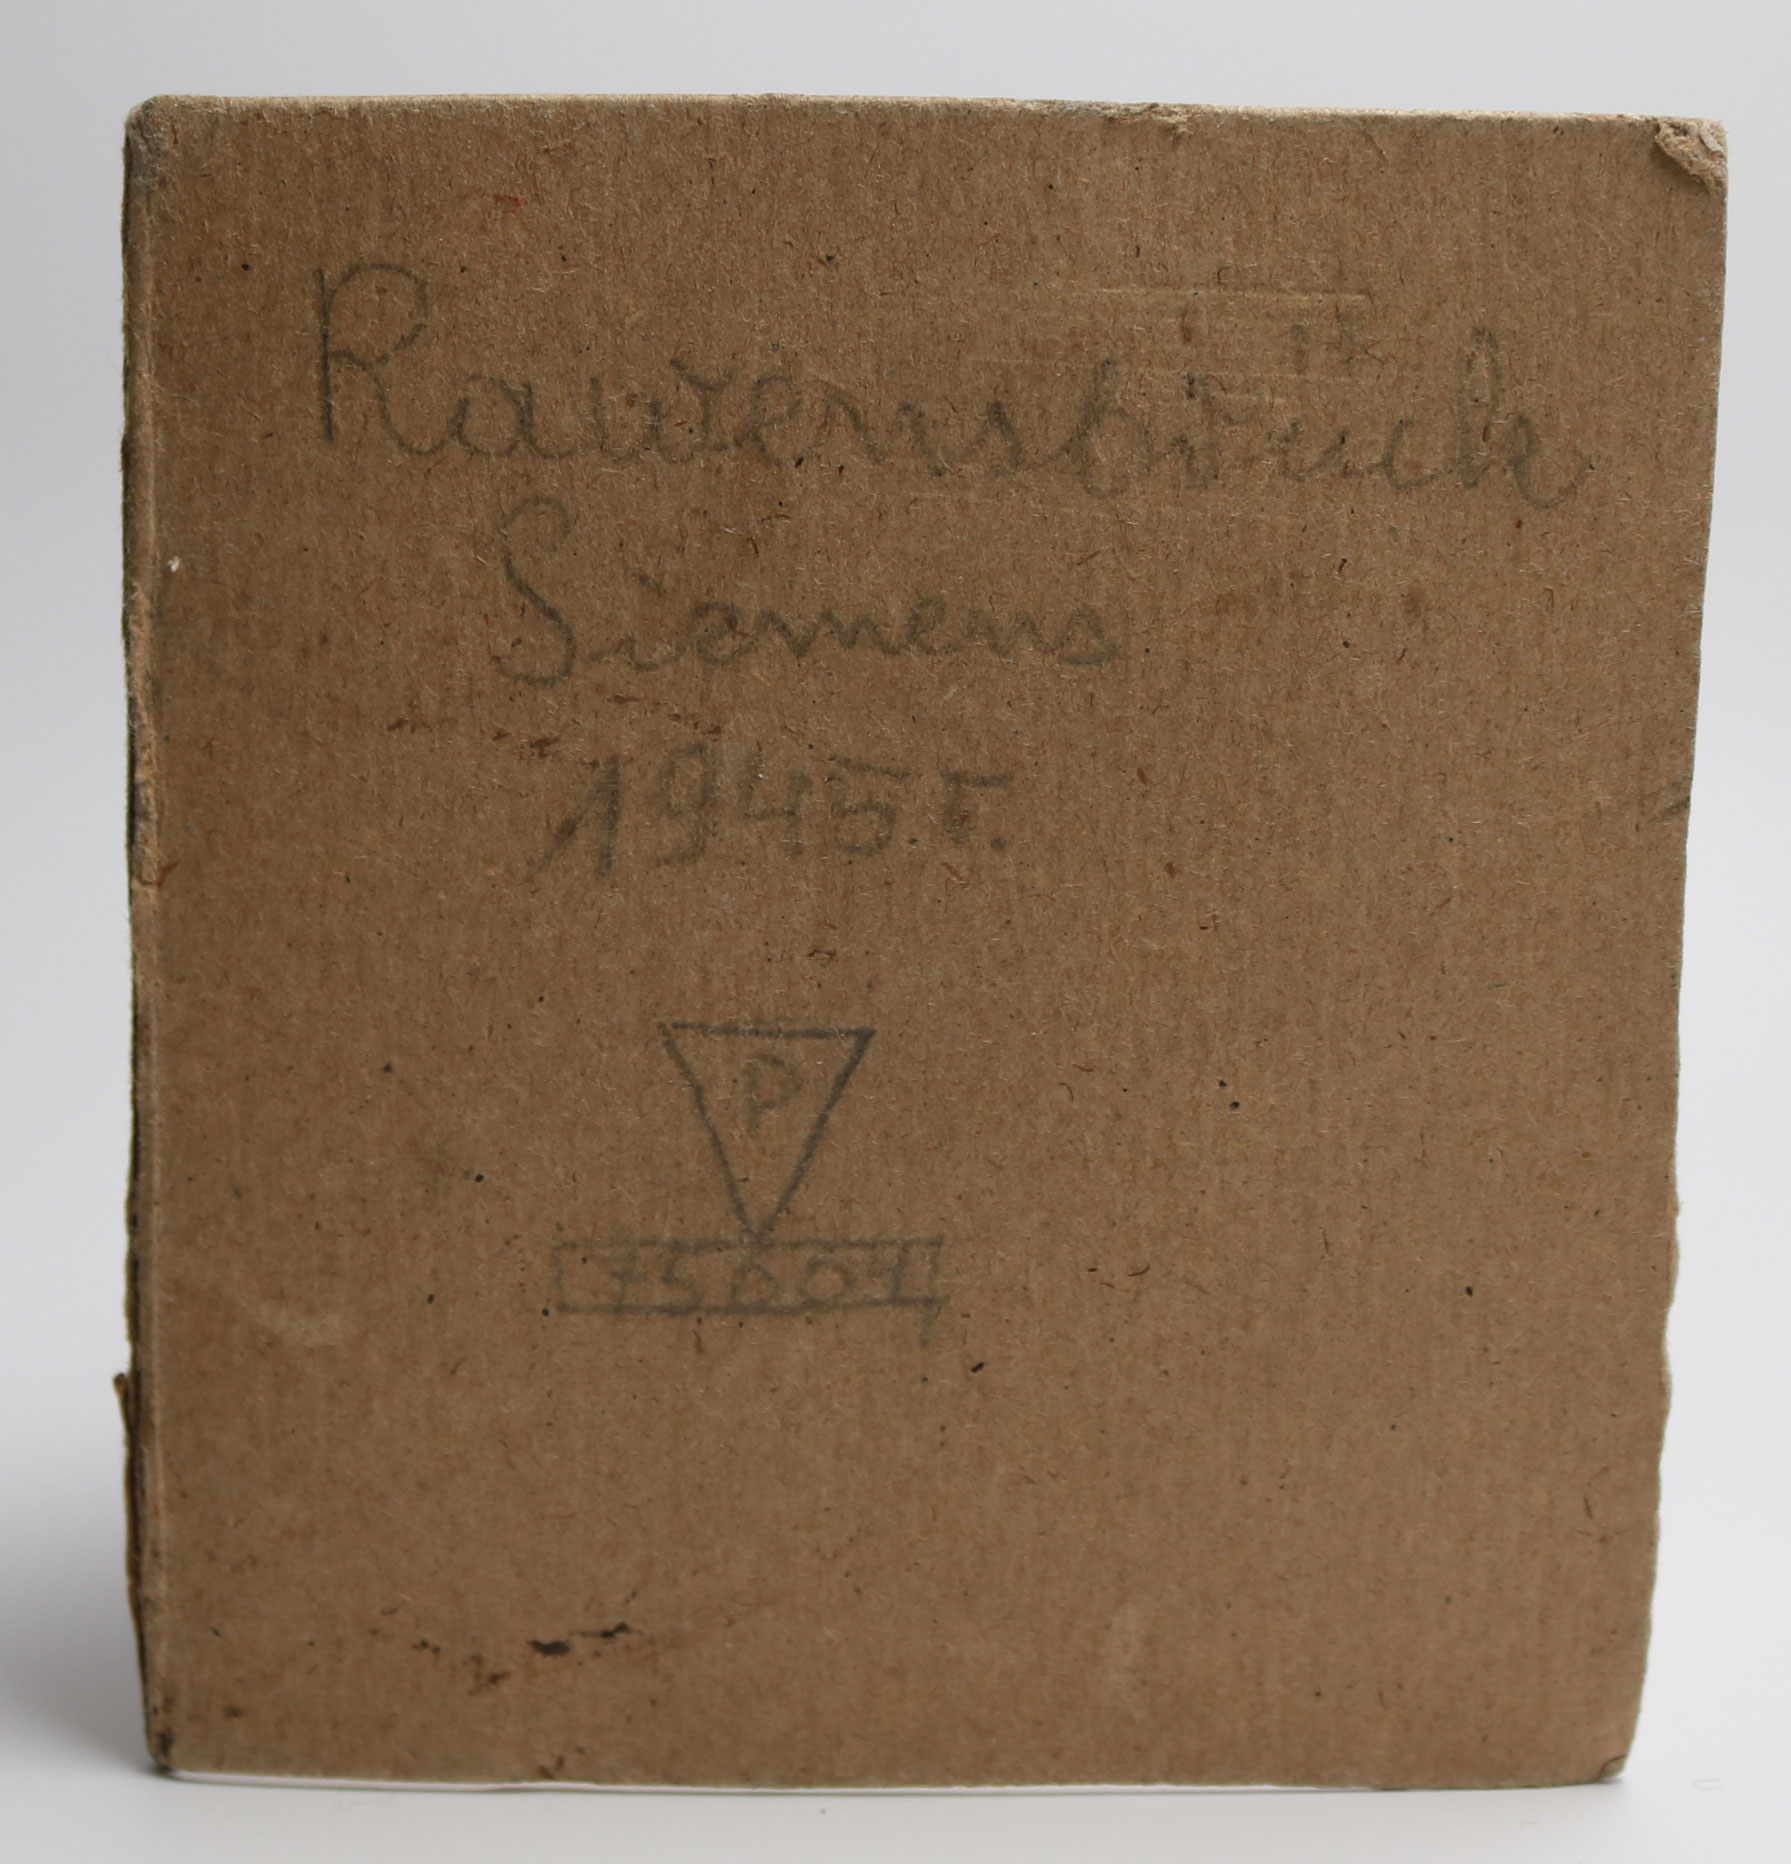 Rawensbrück
Siemens
1945.r.
P
75001